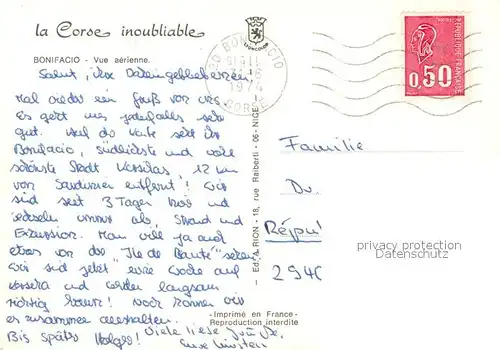 la Corse inoubliable
BONIFACIO - Vue aérienne.
Salut, ihr Daheimgebliebenen!
Mal wieder ein Gruß von uns,
es geht uns jedenfalls sehr
gut. auf der Karte seht ihr
Bonifacio, südlichste und wohl
schönste Stadt Korsikas, 12 km
von Sardinien entfernt! Wir
sind seit 3 Tagen hier und
wechseln immer ab, Strand und
Exkursion. Man will ja auch
etwas von der "Ile de Beauté" sehen.
Wir sind jetzt eine Woche auf
Korsika und werden langsam
richtig braun!
es zusammen aushalten.
Bis später Viele liebe Grüße
Eure
Ed. A. RION - 18, rue Raiberti - 06 - NICE
Imprimé en France
Reproduction interdite
BONIFACIO
1974
CORSE
REPUBLIQUE FRANÇAISE
0,50
Familie
Dr.
294
privacy protection
Datenschutz